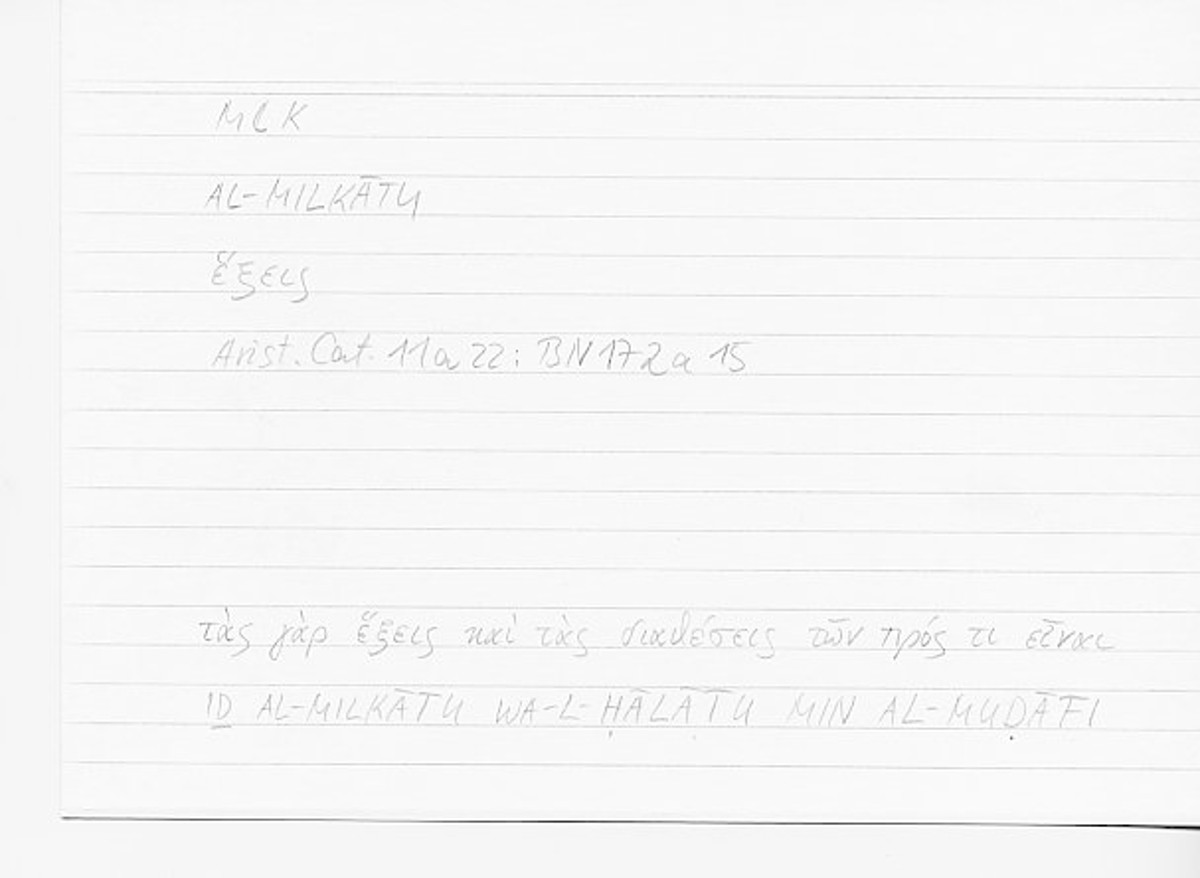 MLK
AL-MILKĀTU
ἕξεις
Arist. Cat. 11a22: BN 172a 15
τὰς γὰρ ἕξεις καὶ τὰς διαθέσεις τῶν πρός τι εἶναι
IḎ AL-MILKĀTU WA-L-ḤĀLĀTU MIN AL-MUḌĀFI